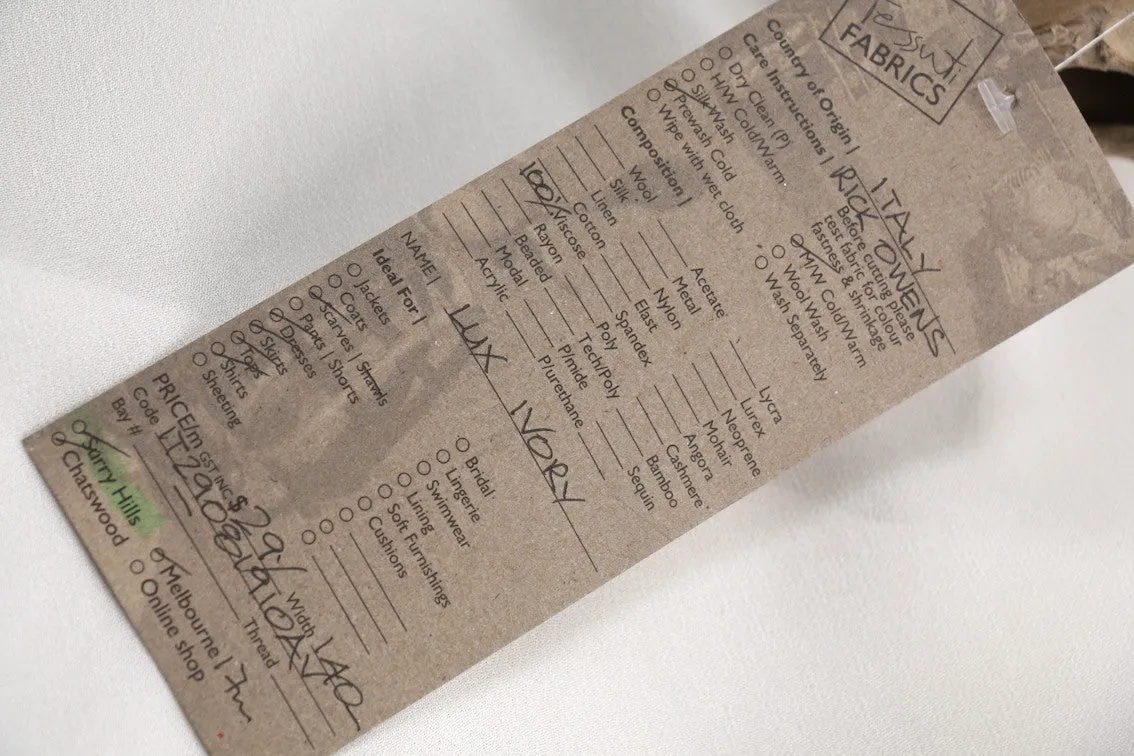 Tessuti
FABRICS
Country of Origin | ITALY
Care Instructions | RICK OWENS
Dry Clean (P)
H/W Cold/Warm
Silk Wash
Prewash Cold
Wipe with wet cloth
Before cutting please
test fabric for colour
fastness & shrinkage
M/W Cold/Warm
Wool Wash
Wash Separately
Composition |
Wool Acetate Lycra
Silk Metal Lurex
Linen Nylon Neoprene
Cotton Elast Mohair
100% Viscose Spandex Angora
Rayon Poly Cashmere
Beaded Tech/Poly Bamboo
Modal P/mide Sequin
Acrylic P/urethane
NAME | LUX IVORY
Ideal For |
Jackets Bridal
Coats Lingerie
Scarves | Shawls Swimwear
Pants | Shorts Lining
Dresses Soft Furnishings
Skirts Cushions
Tops
Shirts
Sheeting
PRICE/m GST INC $29/ Width 140
Code
Bay # Thread
Surry Hills Melbourne | 7m
Chatswood Online shop